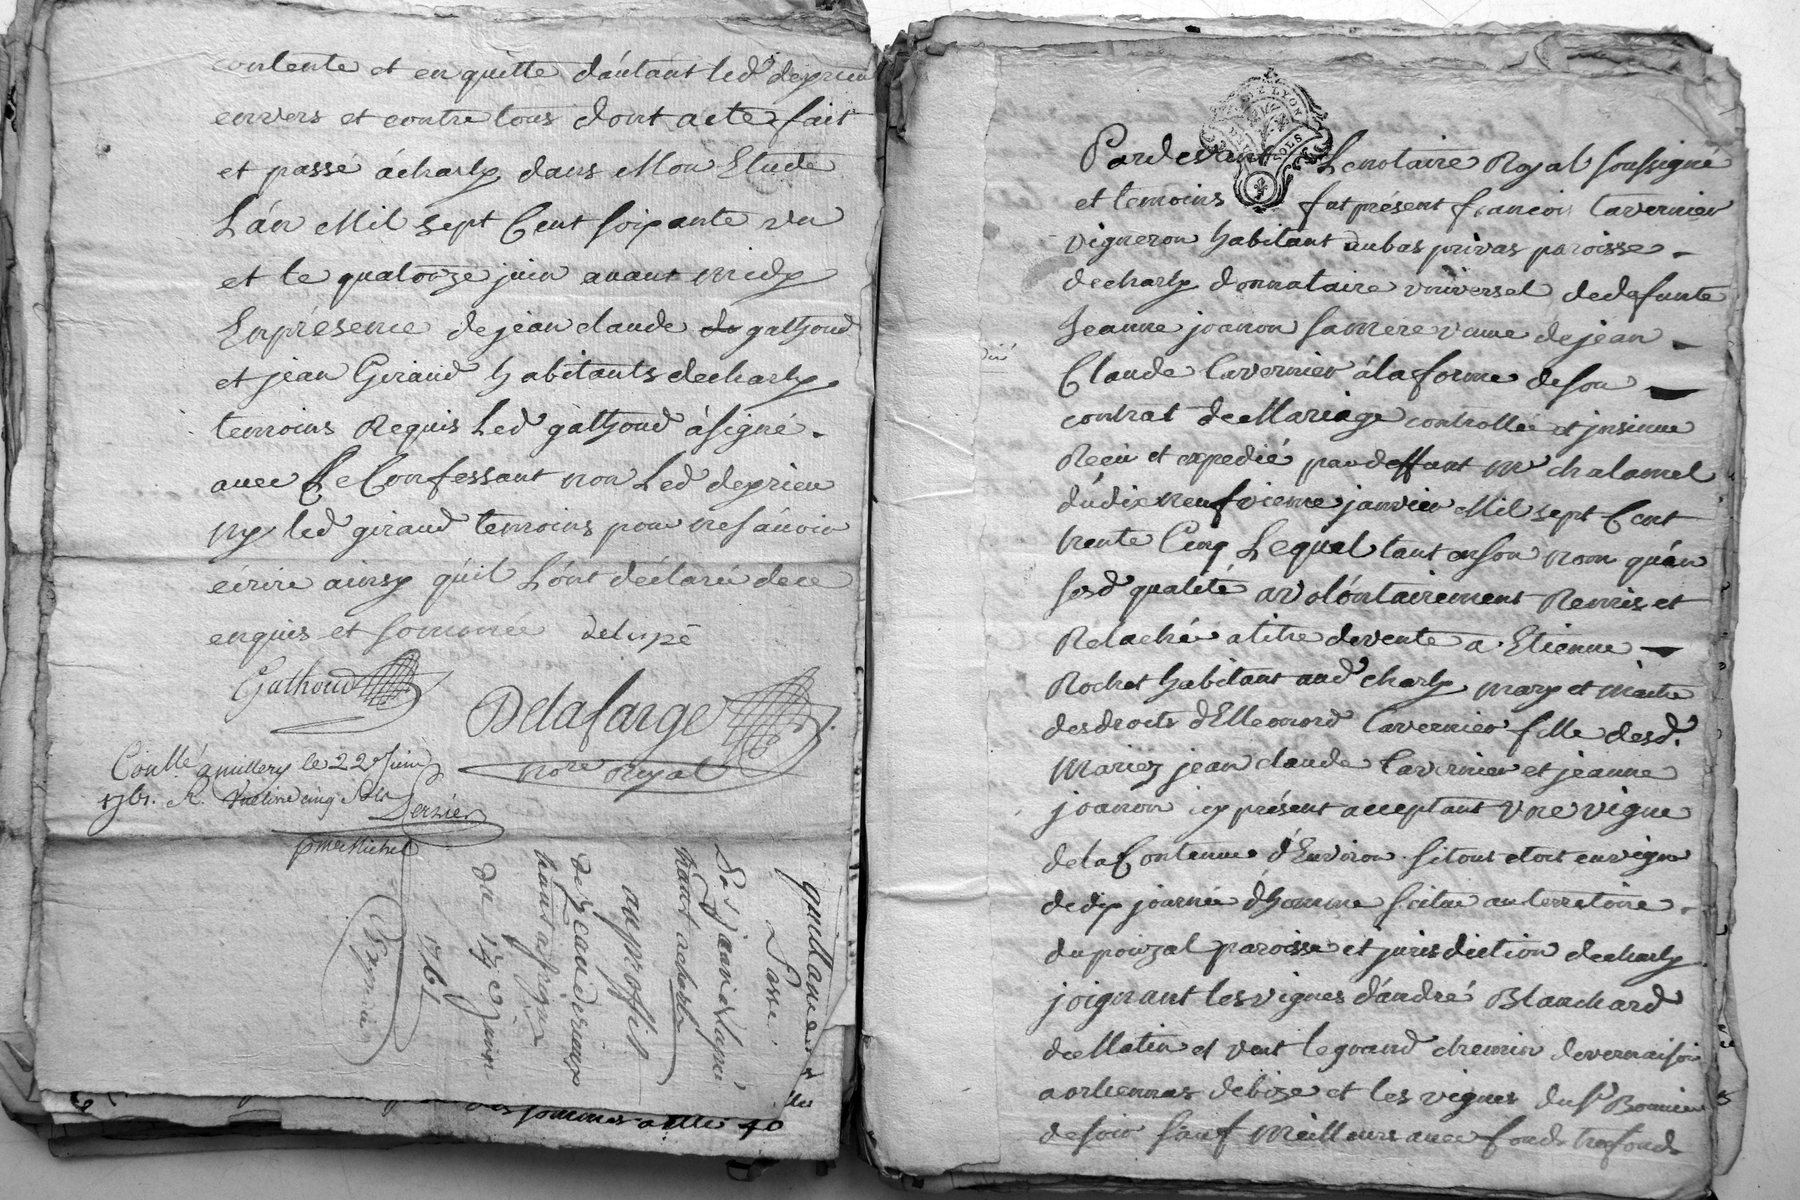 contente et en quitte dáutant led deprieu
envers et contre tous dont acte fait
et passé ácharly dans Mon Etude
Lán Mil sept Cent soixante un
et le quatorze juin avant midy
Enprésence dejean claude de gathoud
et jean Giraud habitants decharly
temoins Requis Led gathoud ásigné
avec Le Confessant non Led deprieu
ny led giraud temoins pour nesávoir
écrire ainsy quil Lónt déclaré dece
enquis et sommé
Gathoud
Delafarge
Notre Royal
Conllé amillery le 22 Juin
1761. R. Une livre cinq sols
quittance
passé
au proffit
du 14e Juin
1761
DE LYON
SOLS
Pardevant Lenotaire Royal soussigné
et temoins fut présent francois tavernier
vigneron habitant aubas privas paroisse
decharly donnataire universel dedefunte
Jeanne joanon samere veuve dejean
Claude tavernier álaforme deson
contrat deMariage controllée et jnsinué
Recu et expedié par deffunt Me chalamel
dúdixneufvieme janvier Mil sept Cent
trente Cinq Lequel tant enson nom quén
sesd qualité avolóntairement Remis et
Relaché atitre devente a Etienne
Rochet habitant aud charly mary et maitre
desdroits dElleonord tavernier fille desd.
Mariez jean claude tavernier et jeanne
joanon icy présent acceptant Une vigne
dela Contenue dEnviron
dedix journée dhomme scitue auterritoire
dupoizat paroisse et jurisdiction decharly
joignant lesvignes dándré Blanchard
deMatin et vent legrand chemin devernaison
aorliennas debize et les vignes duSr
desoir sauf Meilleurs avec fonds trefonds